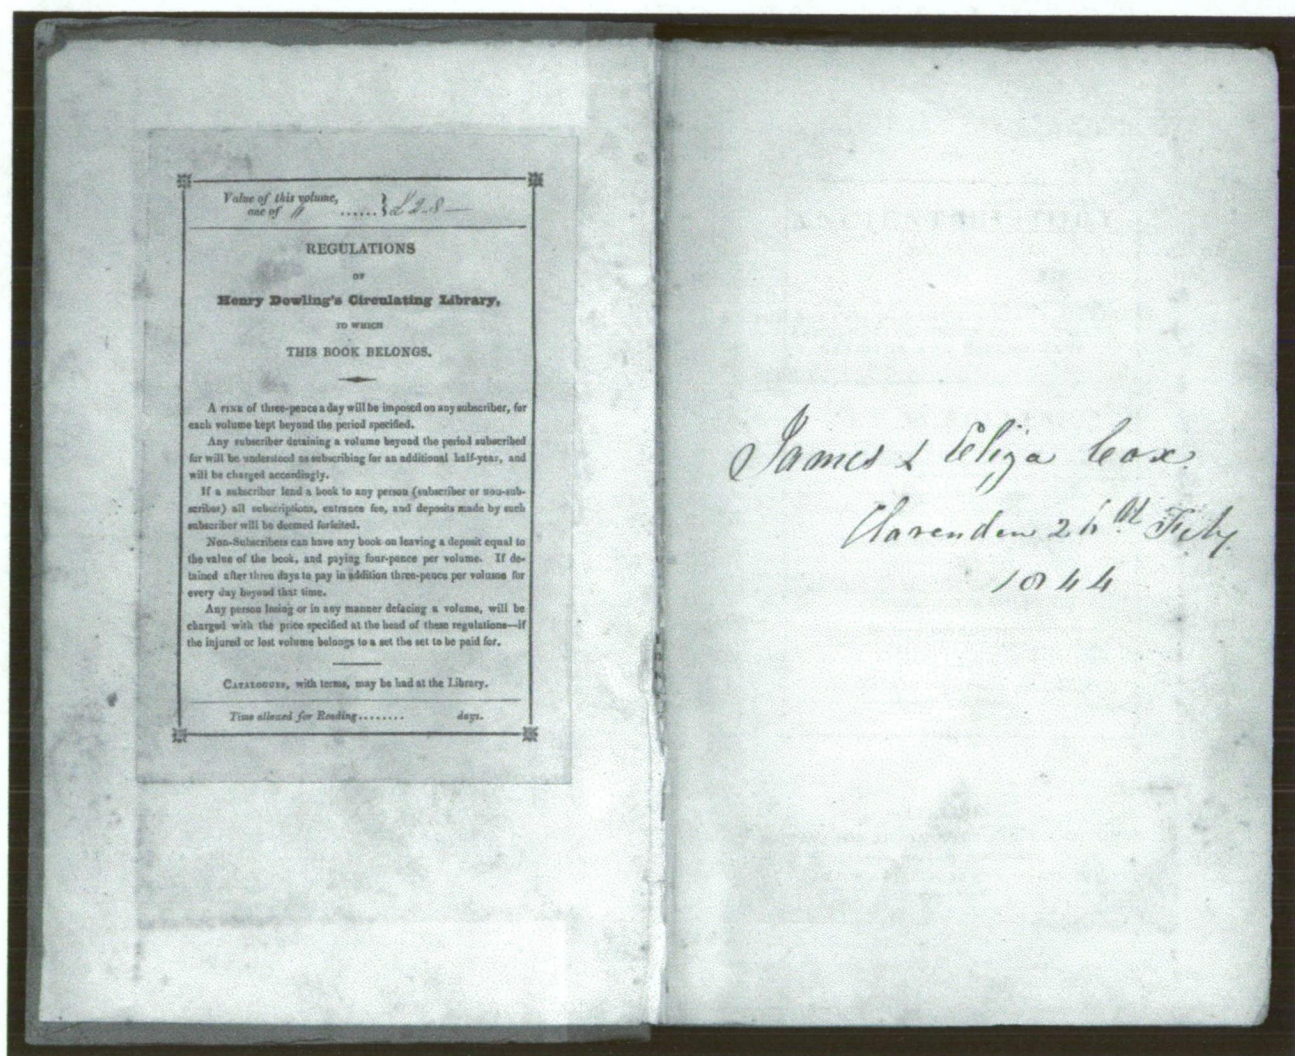 Value of this volume,
one of 11 ...... } £2.8—
REGULATIONS
OF
Henry Dowling's Circulating Library,
TO WHICH
THIS BOOK BELONGS.
A FINE of three-pence a day will be imposed on any subscriber, for
each volume kept beyond the period specified.
Any subscriber detaining a volume beyond the period subscribed
for will be understood as subscribing for an additional half-year, and
will be charged accordingly.
If a subscriber lend a book to any person (subscriber or non-sub-
scriber) all subscriptions, entrance fee, and deposits made by such
subscriber will be deemed forfeited.
Non-Subscribers can have any book on leaving a deposit equal to
the value of the book, and paying four-pence per volume. If de-
tained after three days to pay in addition three-pence per volume for
every day beyond that time.
Any person losing or in any manner defacing a volume, will be
charged with the price specified at the head of these regulations—if
the injured or lost volume belongs to a set the set to be paid for.
CATALOGUES, with terms, may be had at the Library.
Time allowed for Reading........ days.
James & Eliza Cox
Clarendon 26th Feby
1844